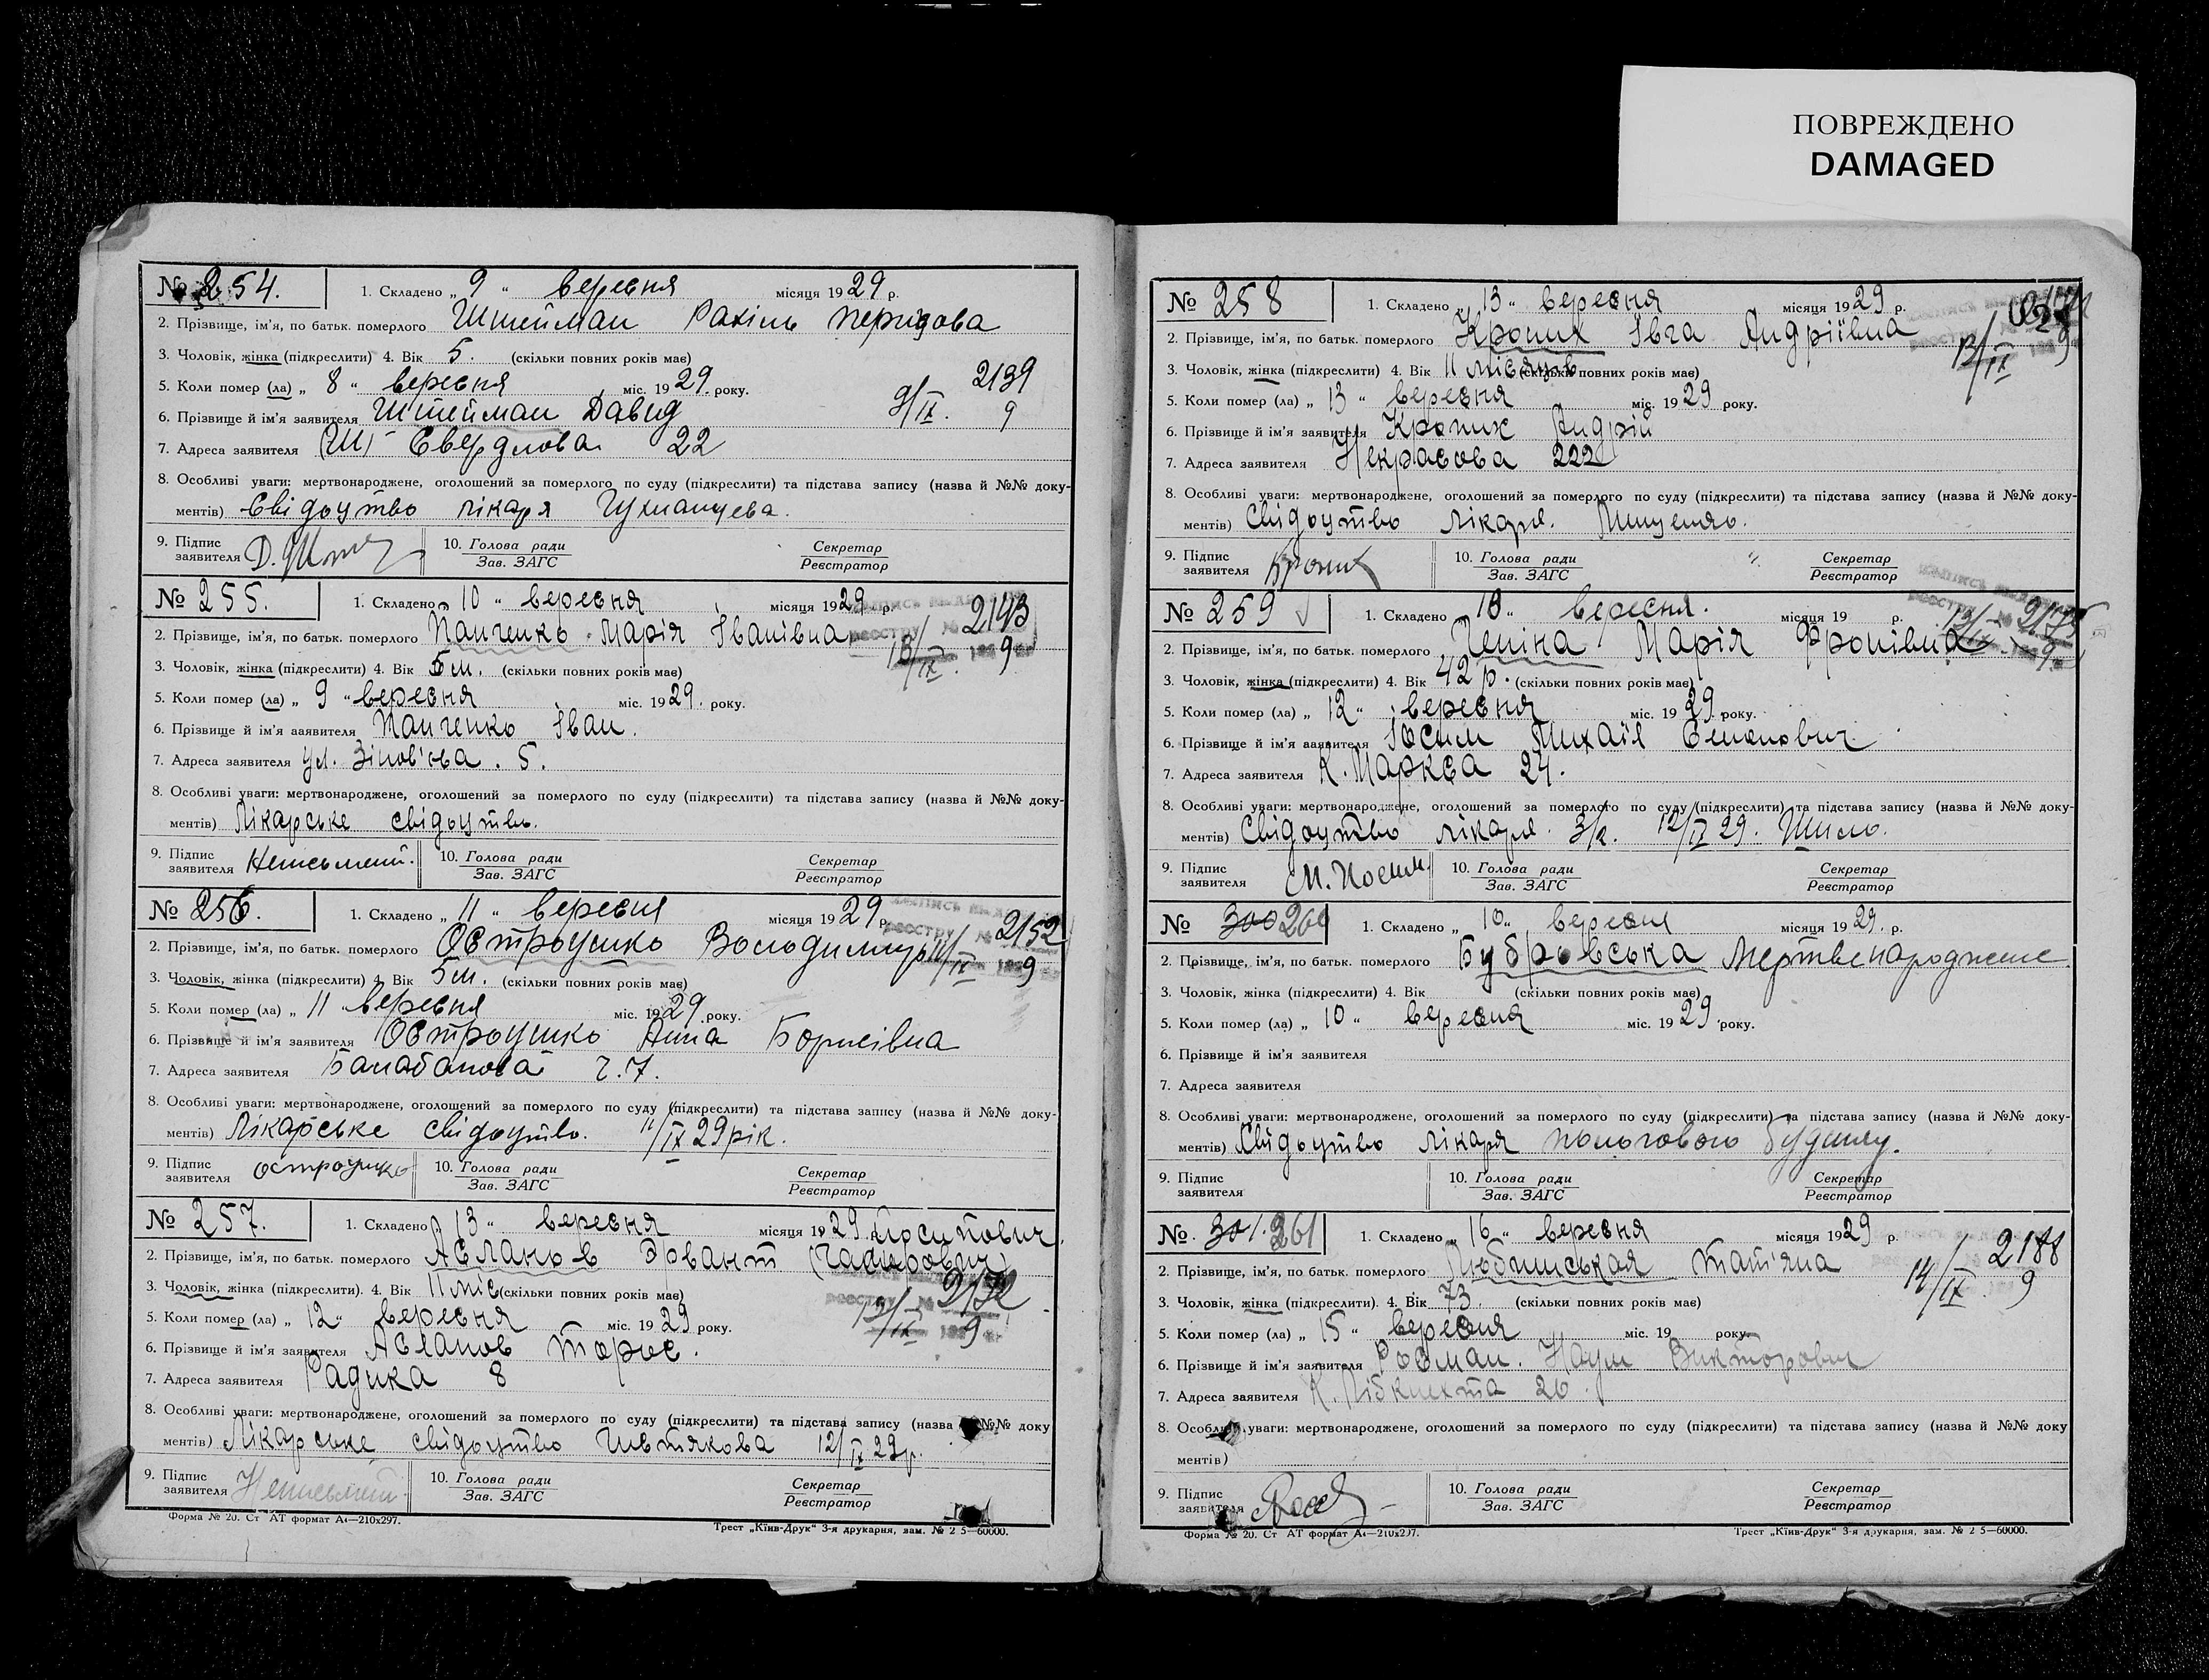 ПОВРЕЖДЕНО
DAMAGED
№ 254. 1. Складено „ 9 “ вересня місяця 1929 р.
2. Прізвище, ім’я, по батьк. померлого Штейман Рахіль
3. Чоловік, жінка (підкреслити) 4. Вік 5. (скільки повних років має)
2139
5. Коли помер (ла) „ 8 “ вересня міс. 1929. року.
9/IX. 9
6. Прізвище й ім’я заявителя Штейман Давид
7. Адреса заявителя (Ш) Свердлова 22
8. Особливі уваги: мертвонароджене, оголошений за померлого по суду (підкреслити) та підстава запису (назва й №№ доку-
ментів) Свідоцтво лікаря
9. Підпис заявителя 10. Голова ради Зав. ЗАГС Секретар Реєстратор
№ 255. 1. Складено „ 10 “ вересня місяця 1929 р.
2143
2. Прізвище, ім’я, по батьк. померлого Панченко Марія Іванівна
13/IX. 9
3. Чоловік, жінка (підкреслити) 4. Вік 5 м. (скільки повних років має)
5. Коли помер (ла) „ 9 “ вересня міс. 1929. року.
6. Прізвище й ім’я заявителя Панченко Іван.
7. Адреса заявителя ул. Зінов’єва. 5.
8. Особливі уваги: мертвонароджене, оголошений за померлого по суду (підкреслити) та підстава запису (назва й №№ доку-
ментів) Лікарське свідоцтво.
9. Підпис заявителя Неписьмений. 10. Голова ради Зав. ЗАГС Секретар Реєстратор
№ 256. 1. Складено „ 11 “ вересня місяця 1929 р.
2152
2. Прізвище, ім’я, по батьк. померлого Остроушко Володимир
11/IX 9
3. Чоловік, жінка (підкреслити) 4. Вік 5 м. (скільки повних років має)
5. Коли помер (ла) „ 11 вересня міс. 1929. року.
6. Прізвище й ім’я заявителя Остроушко Анна Борисівна
7. Адреса заявителя Балабанова ч. 7.
8. Особливі уваги: мертвонароджене, оголошений за померлого по суду (підкреслити) та підстава запису (назва й №№ доку-
ментів) Лікарське свідоцтво. 11/IX 29 рік.
9. Підпис заявителя Остроушко 10. Голова ради Зав. ЗАГС Секретар Реєстратор
№ 257. 1. Складено „ 13 “ вересня місяця 1929 р.
2. Прізвище, ім’я, по батьк. померлого Асланов Эрвант
3. Чоловік, жінка (підкреслити). 4. Вік 11 міс (скільки повних років має)
5. Коли помер (ла) „ 12 “ вересня міс. 1929 року.
13/IX 9
6. Прізвище й ім’я заявителя Асланов Торос.
7. Адреса заявителя Радика 8
8. Особливі уваги: мертвонароджене, оголошений за померлого по суду (підкреслити) та підстава запису (назва й №№ доку
ментів) Лікарське свідоцтво 12/IX 29 р.
9. Підпис заявителя Неписьмений 10. Голова ради Зав. ЗАГС Секретар Реєстратор
Форма № 20. Ст АТ формат А4—210х297. Трест „Київ-Друк“ 3-я друкарня, зам. № 2 5—60000.
№ 258 1. Складено „ 13 “ вересня місяця 1929 р.
2. Прізвище, ім’я, по батьк. померлого Кропих Івга Андріївна
13/IX 9
3. Чоловік, жінка (підкреслити) 4. Вік 11 місяців (скільки повних років має)
5. Коли помер (ла) „ 13 “ вересня міс. 1929 року.
6. Прізвище й ім’я заявителя Андрій
7. Адреса заявителя Некрасова 222
8. Особливі уваги: мертвонароджене, оголошений за померлого по суду (підкреслити) та підстава запису (назва й №№ доку-
ментів) Свідоцтво лікаря.
9. Підпис заявителя 10. Голова ради Зав. ЗАГС Секретар Реєстратор
№ 259 1. Складено „ 13 “ вересня. місяця 19 р.
2. Прізвище, ім’я, по батьк. померлого Марія
3. Чоловік, жінка (підкреслити) 4. Вік 42 р. (скільки повних років має)
5. Коли помер (ла) „ 12 “ вересня міс. 1929 року.
6. Прізвище й ім’я заявителя Михаїл Семонович
7. Адреса заявителя К. Маркса 24.
8. Особливі уваги: мертвонароджене, оголошений за померлого по суду (підкреслити) та підстава запису (назва й №№ доку-
ментів) Свідоцтво лікаря. З/к. 12/IX 29. Шило.
9. Підпис заявителя 10. Голова ради Зав. ЗАГС Секретар Реєстратор
№ 300 260 1. Складено „ 10 “ вересня місяця 1929. р.
2. Прізвище, ім’я, по батьк. померлого Бубровська Мертвенароджене
3. Чоловік, жінка (підкреслити) 4. Вік (скільки повних років має)
5. Коли помер (ла) „ 10 “ вересня міс. 1929 року.
6. Прізвище й ім’я заявителя
7. Адреса заявителя
8. Особливі уваги: мертвонароджене, оголошений за померлого по суду (підкреслити) та підстава запису (назва й №№ доку-
ментів) Свідоцтво лікаря пологового будинку.
9. Підпис заявителя 10. Голова ради Зав. ЗАГС Секретар Реєстратор
№ 301. 261 1. Складено „ 16 “ вересня місяця 1929 р.
2188
2. Прізвище, ім’я, по батьк. померлого Любинськая Татіяна
14/IX 9
3. Чоловік, жінка (підкреслити). 4. Вік 73. (скільки повних років має)
5. Коли помер (ла) „ 15 “ вересня міс. 19 року.
6. Прізвище й ім’я заявителя Росман. Наум Викторович
7. Адреса заявителя К. Лібкнехта 26.
8. Особливі уваги: мертвонароджене, оголошений за померлого по суду (підкреслити) та підстава запису (назва й №№ доку
ментів)
9. Підпис заявителя 10. Голова ради Зав. ЗАГС Секретар Реєстратор
Форма № 20. Ст АТ формат А4—210х297. Трест „Київ-Друк“ 3-я друкарня, зам. № 2 5—60000.